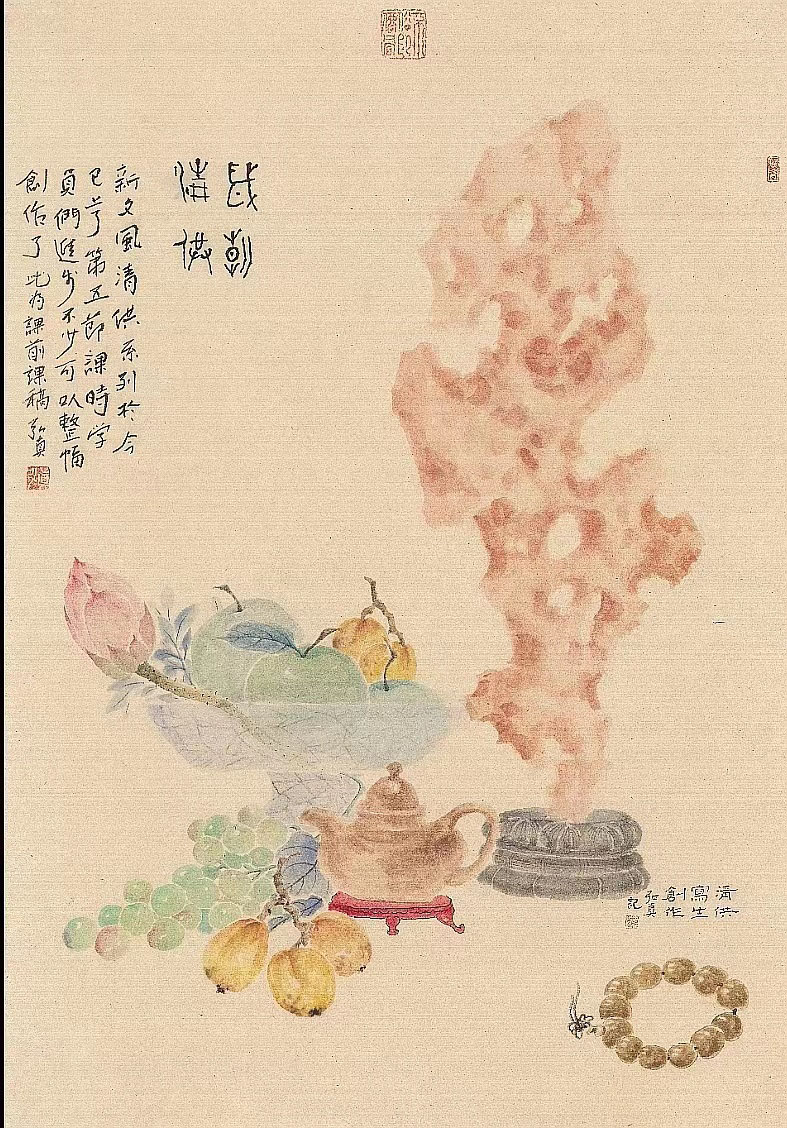 歲朝
清供
新文風清供系列於今
已第五節課時学
員們進步不少可以整幅
創作了此为課前課稿弘真
清供
寫生
創作
弘真
記